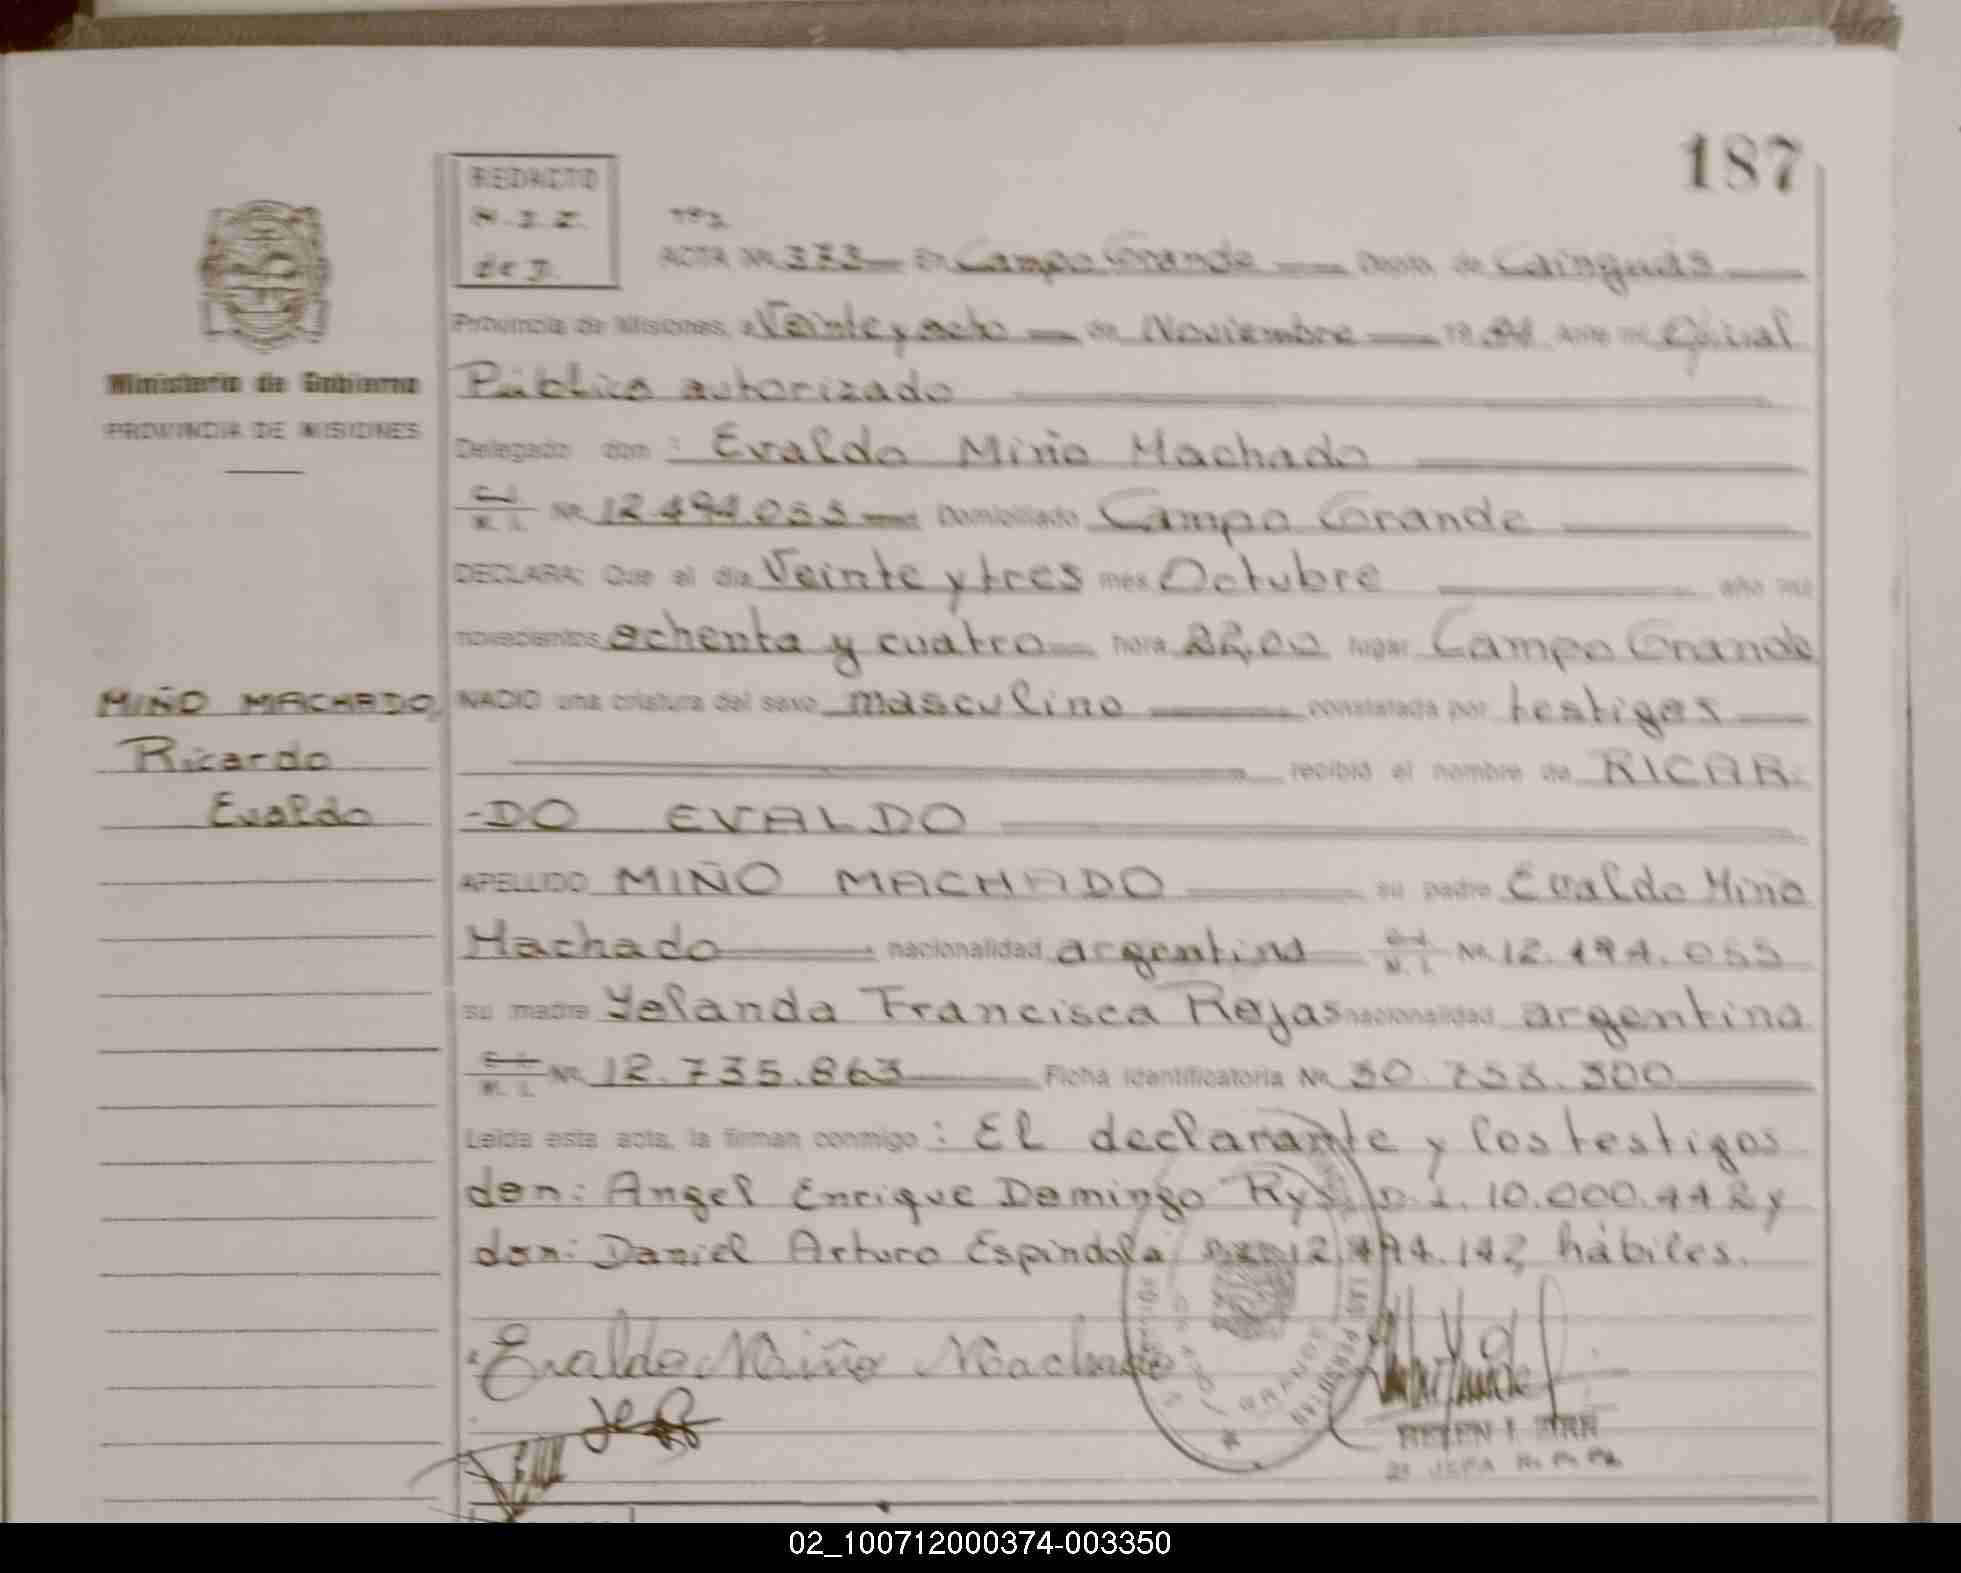 187
REDACTO
Tº2.
ACTA Nº 373 En Campo Grande Dpto. de Cainguás
Provincia de Misiones, a Veinte y ocho de Noviembre 19 84 ante mi Oficial
Público autorizado
Delegado don : Evaldo Miño Machado
C. I.
M. I. Nº 12.494.055 Domiciliado Campo Grande
DECLARA: Que el día Veinte y tres mes Octubre año mil
novecientos ochenta y cuatro hora 22,00 lugar Campo Grande
NACIO una criatura del sexo masculino constatada por testigos
recibió el nombre de RICAR-
-DO EVALDO
APELLIDO MIÑO MACHADO su padre Evaldo Miño
Machado nacionalidad argentina C. I.
M. I. Nº 12.494.055
su madre Yolanda Francisca Rojas nacionalidad argentina
C. I.
M. I. Nº 12.735.863 Ficha identificatoria Nº 30.753.300
Leída esta acta, la firman conmigo : El declarante y los testigos
don: Angel Enrique Domingo Rys D.I. 10.000.442 y
don: Daniel Arturo Espindola 12.494.142 hábiles.
Evaldo Miño Machado
Ministerio de Gobierno
PROVINCIA DE MISIONES
MIÑO MACHADO,
Ricardo
Evaldo
02_100712000374-003350